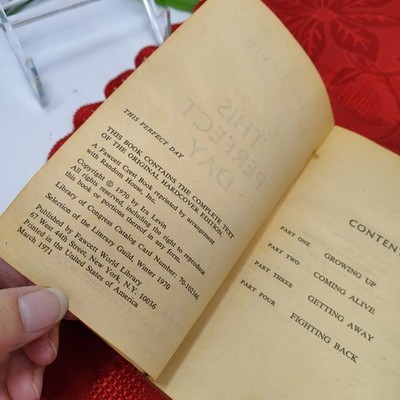 THIS PERFECT DAY
THIS BOOK CONTAINS THE COMPLETE TEXT
OF THE ORIGINAL HARDCOVER EDITION.
A Fawcett Crest Book reprinted by arrangement
with Random House, Inc.
Copyright © 1970 by Ira Levin
All rights reserved, including the right to reproduce
this book or portions thereof in any form.
Library of Congress Catalog Card Number: 70-102344
Selection of the Literary Guild, Winter 1970
Published by Fawcett World Library
67 West 44th Street, New York, N.Y. 10036
Printed in the United States of America
March 1971
THIS
PERFECT
DAY
CONTEN
PART ONE GROWING UP
PART TWO COMING ALIVE
PART THREE GETTING AWAY
PART FOUR FIGHTING BACK